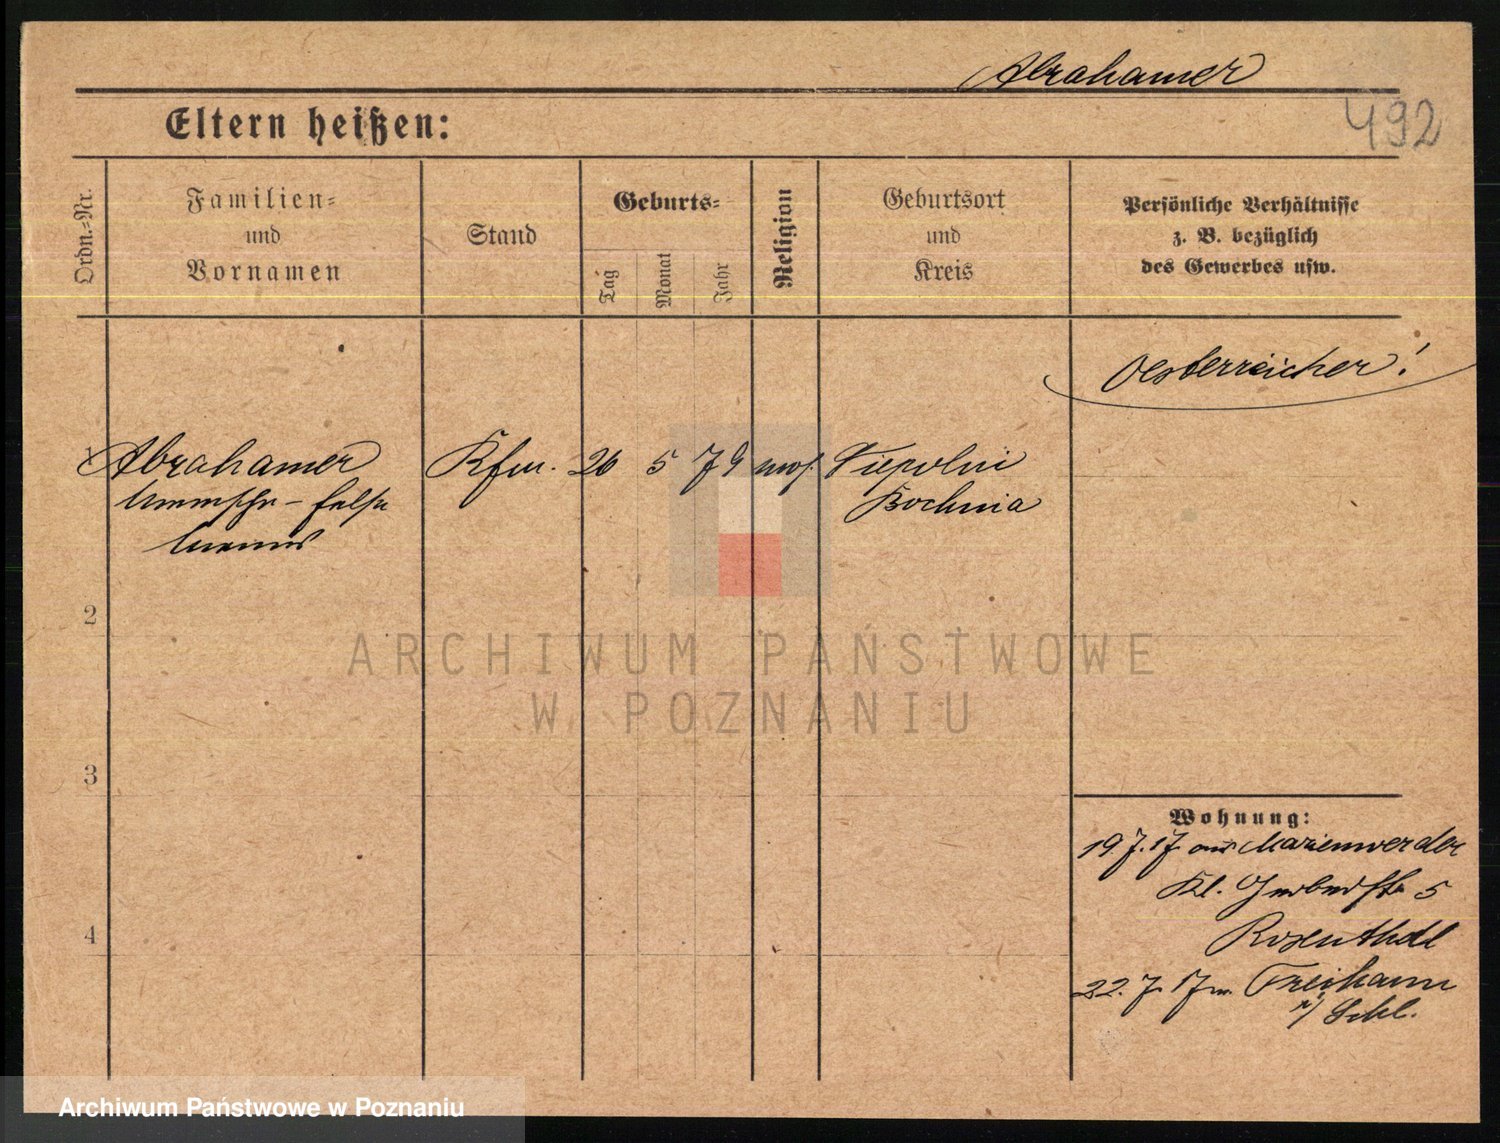 Abrahamer
492
Eltern heißen:
Ordn.=Nr.
Familien=
und
Vornamen
Stand
Geburts=
Tag
Monat
Jahr
Religion
Geburtsort
und
Kreis
Persönliche Verhältnisse
z. B. bezüglich
des Gewerbes usw.
Oesterreicher!
1 Abrahamer Kfm. 26 5 79 mos.
Bochnia
2
3
4
Wohnung:
19 7. 17 aus Marienwerder
Kl. Gerberstr 5
Rosenthal
22. 7. 17 n. Freihann
i/ Schl.
ARCHIWUM PAŃSTWOWE
W POZNANIU
Archiwum Państwowe w Poznaniu